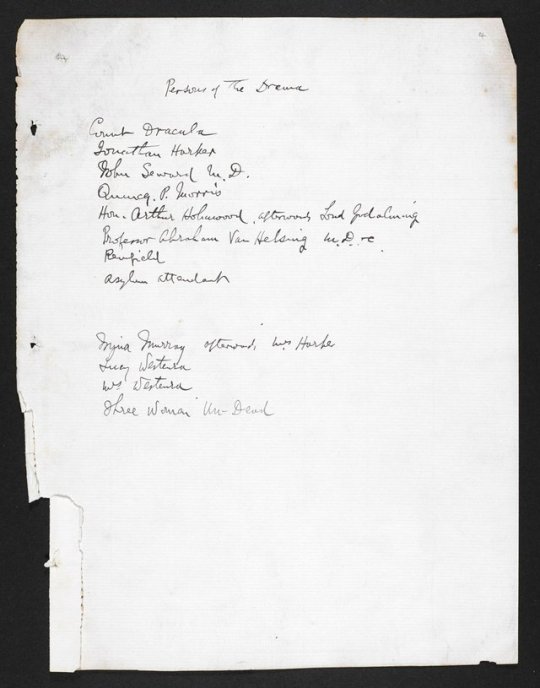 Persons of the Drama
Count Dracula
Jonathan Harker
John Seward M.D.
Quincey P. Morris
Hon. Arthur Holmwood, afterwards Lord Godalming
Professor Abraham Van Helsing M.D. &c
Renfield
Asylum attendant
Mina Murray afterwards Mrs Harker
Lucy Westenra
Mrs Westenra
Three Woman Un-Dead